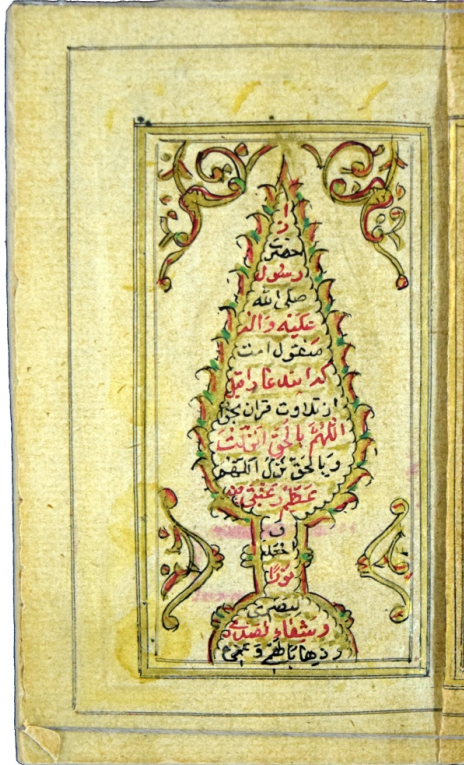 از
حضرت
رسول
صلی الله
علیه واله
منقول است
که این دعا را قبل
از تلاوت قران بخوا
اللهم بالحق انزلت
وبالحق نزل اللهم
عظم رغبتی فیه
و
اجعله
نورا
لبصری
وشفاء لصدری
وذهابا لهمی وغمی